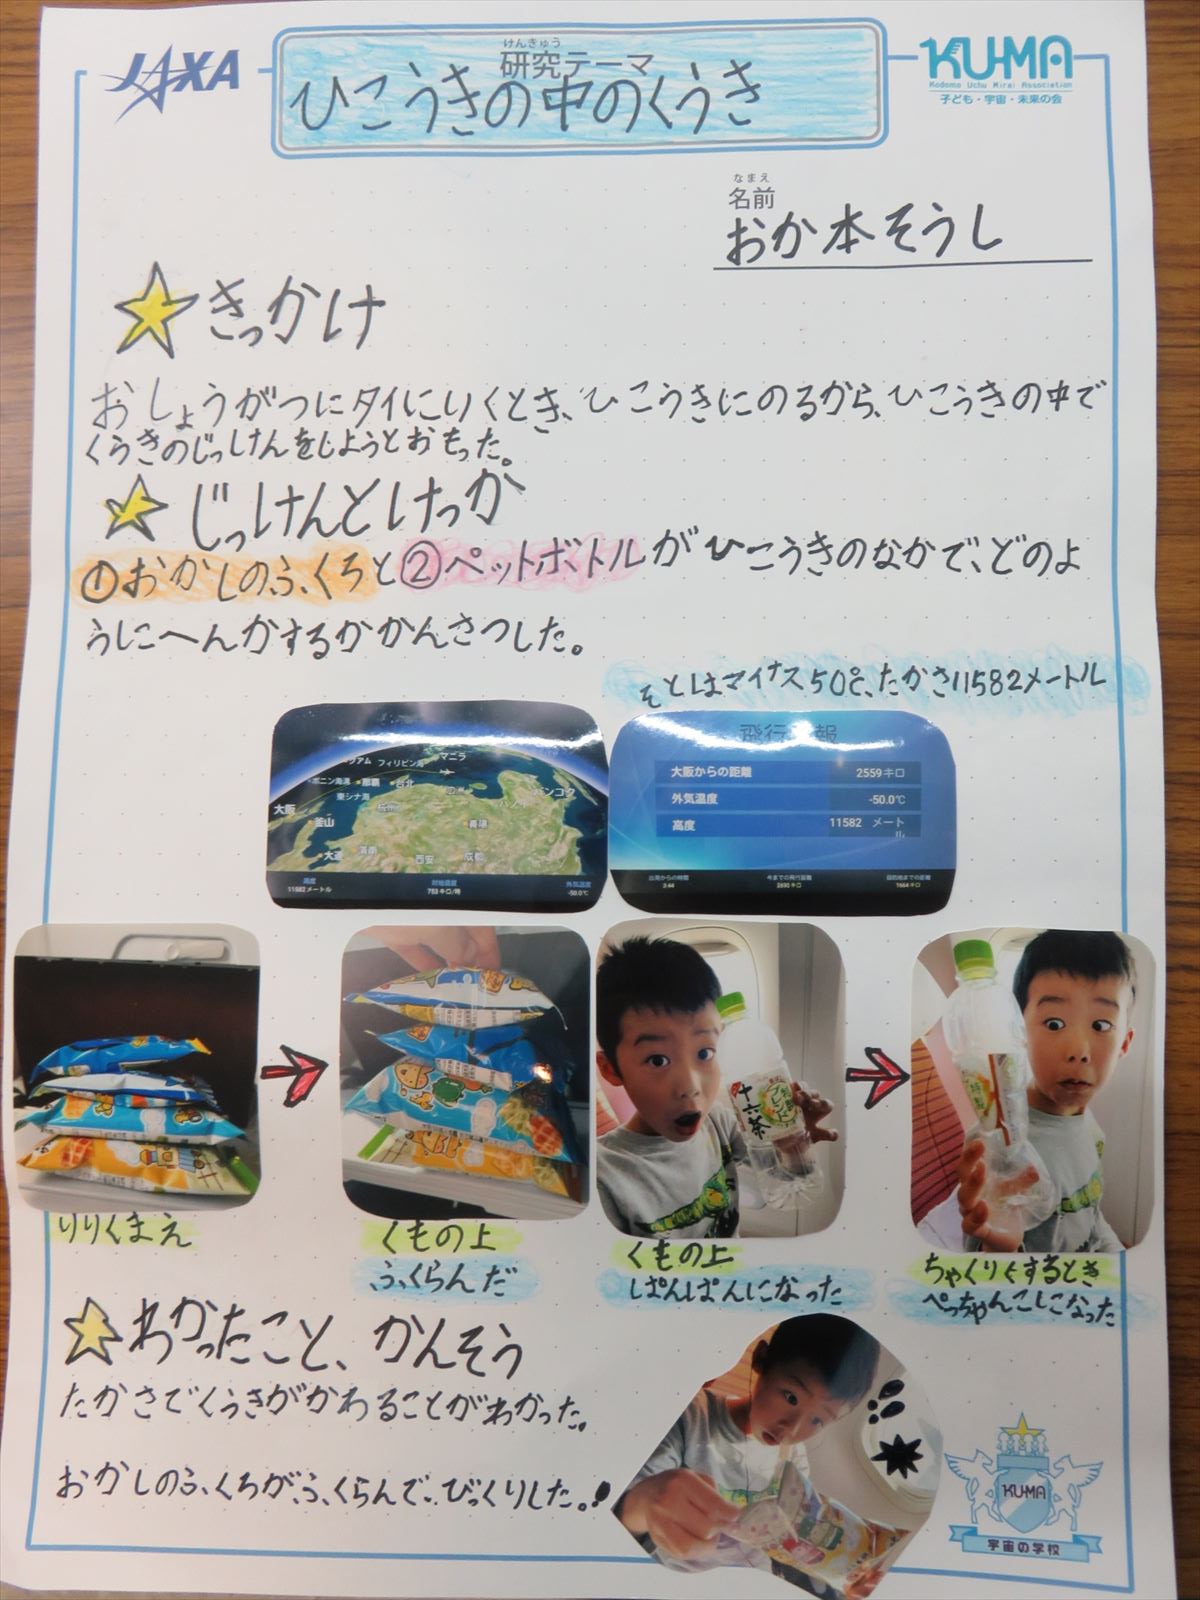 JAXA
けんきゅう
研究テーマ
ひこうきの中のくうき
KU-MA
Kodomo Uchu Mirai Association
子ども・宇宙・未来の会
なまえ
名前
おか本そうし
きっかけ
おしょうがつにタイにいくとき、ひこうきにのるから、ひこうきの中で
くうきのじっけんをしようとおもった。
じっけんとけっか
①おかしのふくろと②ペットボトルがひこうきのなかで、どのよ
うにへんかするかかんさつした。
そとはマイナス50℃、たかさ11582メートル
マニラ
フィリピン海
ボニン海溝
那覇
台北
東シナ海
バンコク
大阪
釜山
青陽
大連
済南
西安
成都
高度
11582メートル
対地速度
753キロ/時
外気温度
-50.0℃
大阪からの距離 2559キロ
外気温度 -50.0℃
高度 11582 メートル
出発からの時間
3:44
今までの飛行距離
2690キロ
目的地までの距離
1664キロ
十六茶
りりくまえ
くもの上
ふくらんだ
くもの上
ぱんぱんになった
ちゃくりくするとき
ぺっちゃんこになった
わかったこと、かんそう
たかさでくうきがかわることがわかった。
おかしのふくろが、ふくらんで、びっくりした。!
KU-MA
宇宙の学校